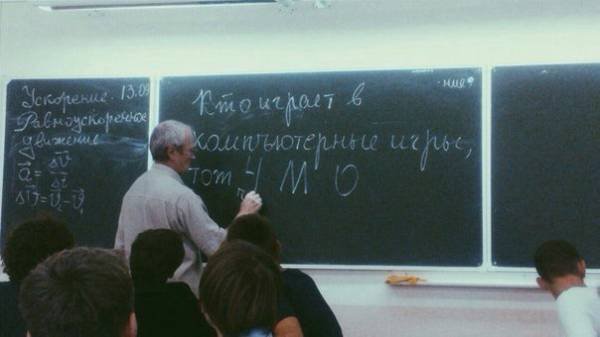 Ускорение. 13.09
Равноускоренное
движение
Кто играет в
компъютерные игры,
тот Ч М О